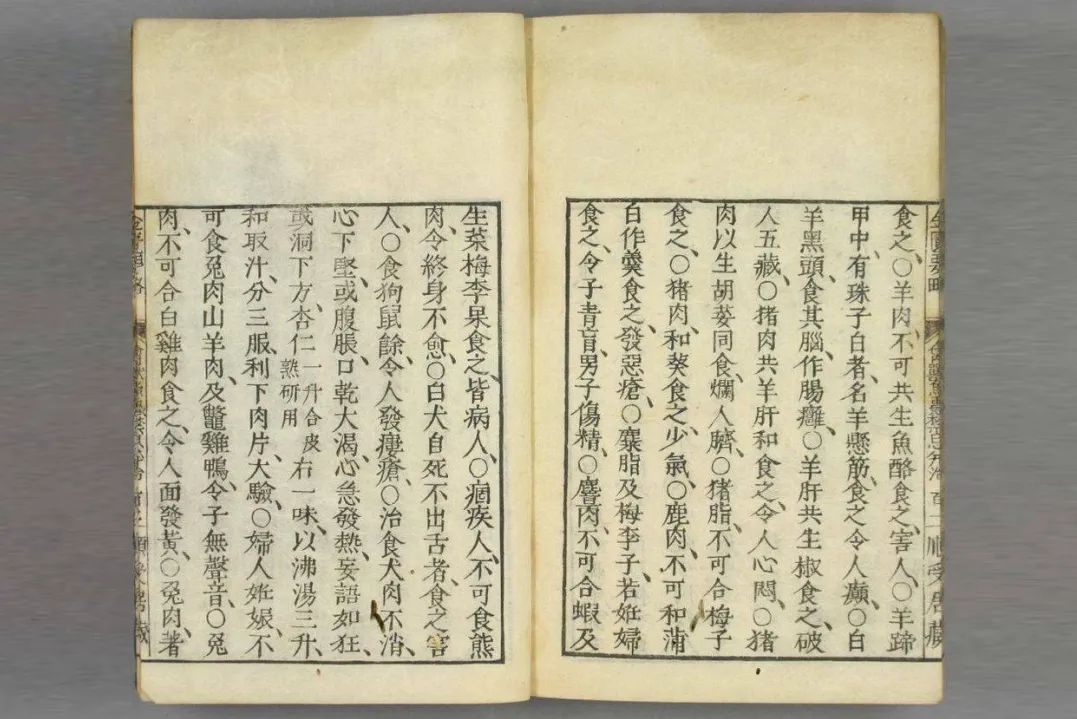 食之、〇羊肉、不可共生魚酪食之、害人、〇羊蹄
甲中、有珠子白者、名羊懸筋、食之令人癲、〇白
羊黑頭、食其腦、作腸癰、〇羊肝共生椒食之、破
人五藏、〇猪肉共羊肝和食之、令人心悶、〇猪
肉以生胡荽同食、爛人臍、〇猪脂、不可合梅子
食之、〇猪肉、和葵食之、少氣、〇鹿肉、不可和蒲
白作羹、食之、發惡瘡、〇麋脂及梅李子、若妊婦
食之、令子青盲、男子傷精、〇麞肉、不可合蝦及
生菜梅李果食之、皆病人、〇痼疾人、不可食熊
肉、令終身不愈、〇白犬自死、不出舌者、食之害
人、〇食狗鼠餘、令人發瘻瘡、〇治食犬肉不消、
心下堅、或腹脹、口乾大渴、心急發熱、妄語如狂、
或洞下方、杏仁一升合皮熟研用右一味、以沸湯三升、
和取汁、分三服、利下肉片、大驗、〇婦人妊娠、不
可食兔肉山羊肉、及鼈雞鴨、令子無聲音、〇兔
肉、不可合白雞肉食之、令人面發黃、〇兔肉、著